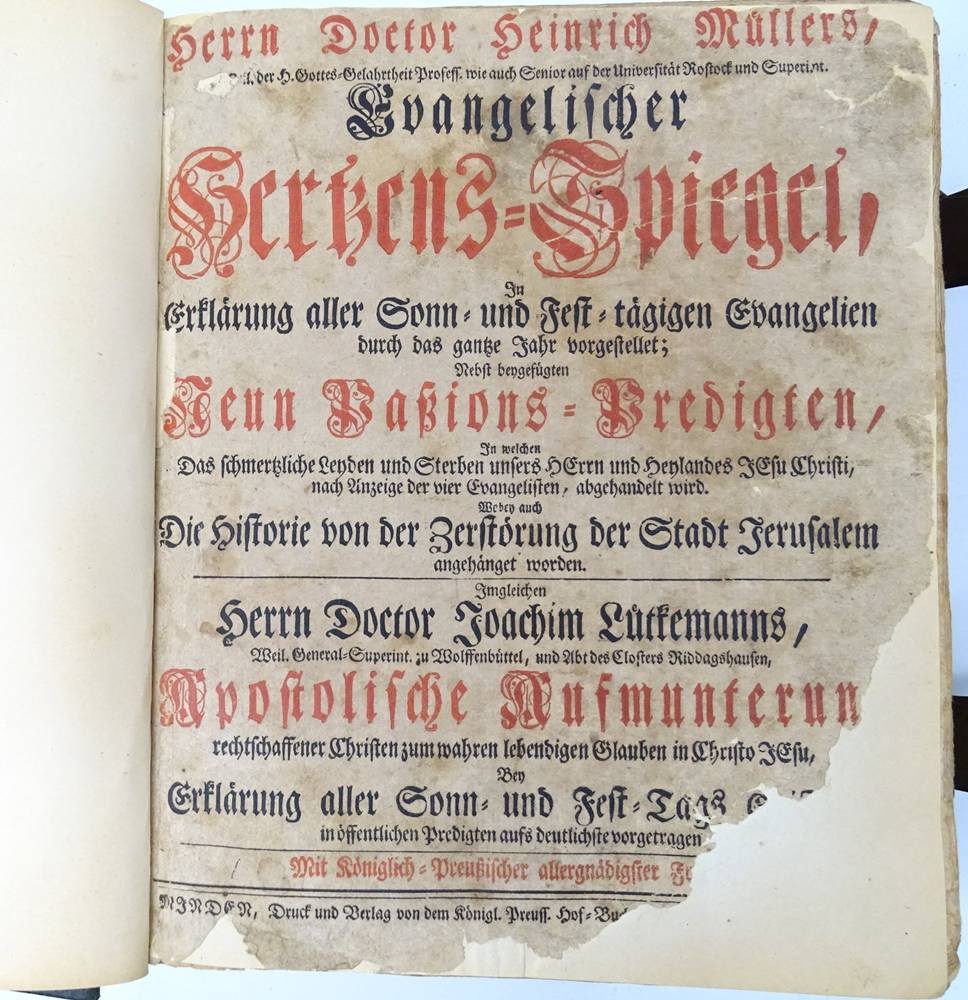 Herrn Doctor Heinrich Müllers,
der H. Gottes-Gelahrtheit Profess. wie auch Senior auf der Universität Rostock und Superint.
Evangelischer
Hertzens-Spiegel,
In
Erklärung aller Sonn- und Fest-tägigen Evangelien
durch das gantze Jahr vorgestellet;
Nebst beygefügten
Neun Paßions-Predigten,
In welchen
Das schmertzliche Leyden und Sterben unsers HErrn und Heylandes JEsu Christi,
nach Anzeige der vier Evangelisten, abgehandelt wird.
Wobey auch
Die Historie von der Zerstörung der Stadt Jerusalem
angehänget worden.
Imgleichen
Herrn Doctor Joachim Lütkemanns,
Weil. General-Superint. zu Wolffenbüttel, und Abt des Closters Riddagshausen,
Apostolische Aufmunterun
rechtschaffener Christen zum wahren lebendigen Glauben in Christo JEsu,
Bey
Erklärung aller Sonn- und Fest-Tags
in öffentlichen Predigten aufs deutlichste vorgetragen
Mit Königlich-Preußischer allergnädigster
MINDEN, Druck und Verlag von dem Königl. Preuss. Hof-Buc